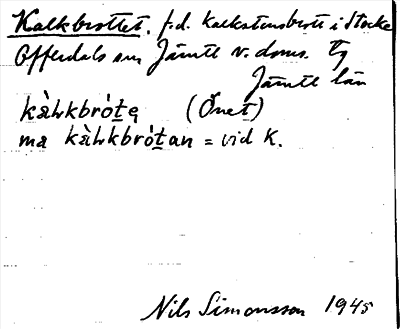 Kalkbrottet. f.d. kalkstensbrott i Stocke
Offerdals sn Jämtl v. doms.
Jämtl län
kàl̥kbróte̱ (Önet)
ma kàl̥kbróta̱n = vid K.
Nils Simonsson 1945